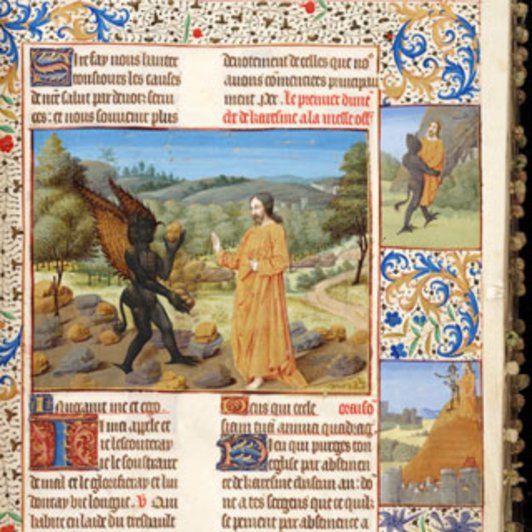 Sire fay nous hanter
tousiours les causes
de nre salut par devotz servi
ces: et nous souvient plus
devotement de celles que no9
avons comencies principau
ment. Per. Le premier dime
che de karesme a la messe off
Invocavit me et ego.
Il ma apele et
ie lescouteray
ie le
de mal et le glorifieray et lui
donray vie longue. V Qui
habite en laide du treshault
Deus qui eccle. oraiso
tuam annua quadrag.
Dieu qui purges ton
eglise par abstinen
ce de karesme chascun an: do
ne a tes sergens que ce quilz
se peinent par abstinence a